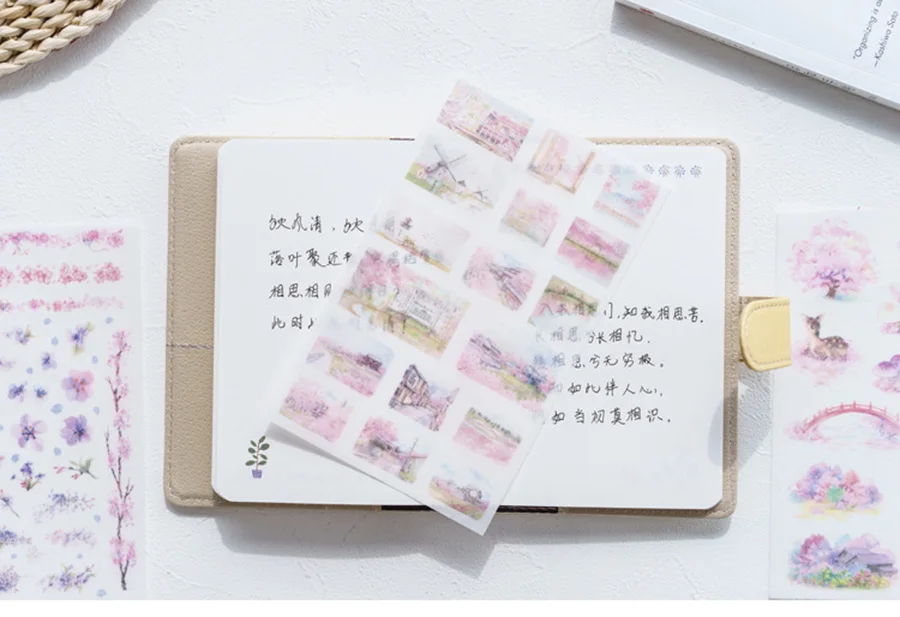 秋风清，秋
落叶聚还
相思相
此时
相思门，知我相思苦，
相思兮长相忆，
相思兮无穷极。
如此伴人心，
如当初莫相识。
"Organizing is a
—Kashiwa Sato